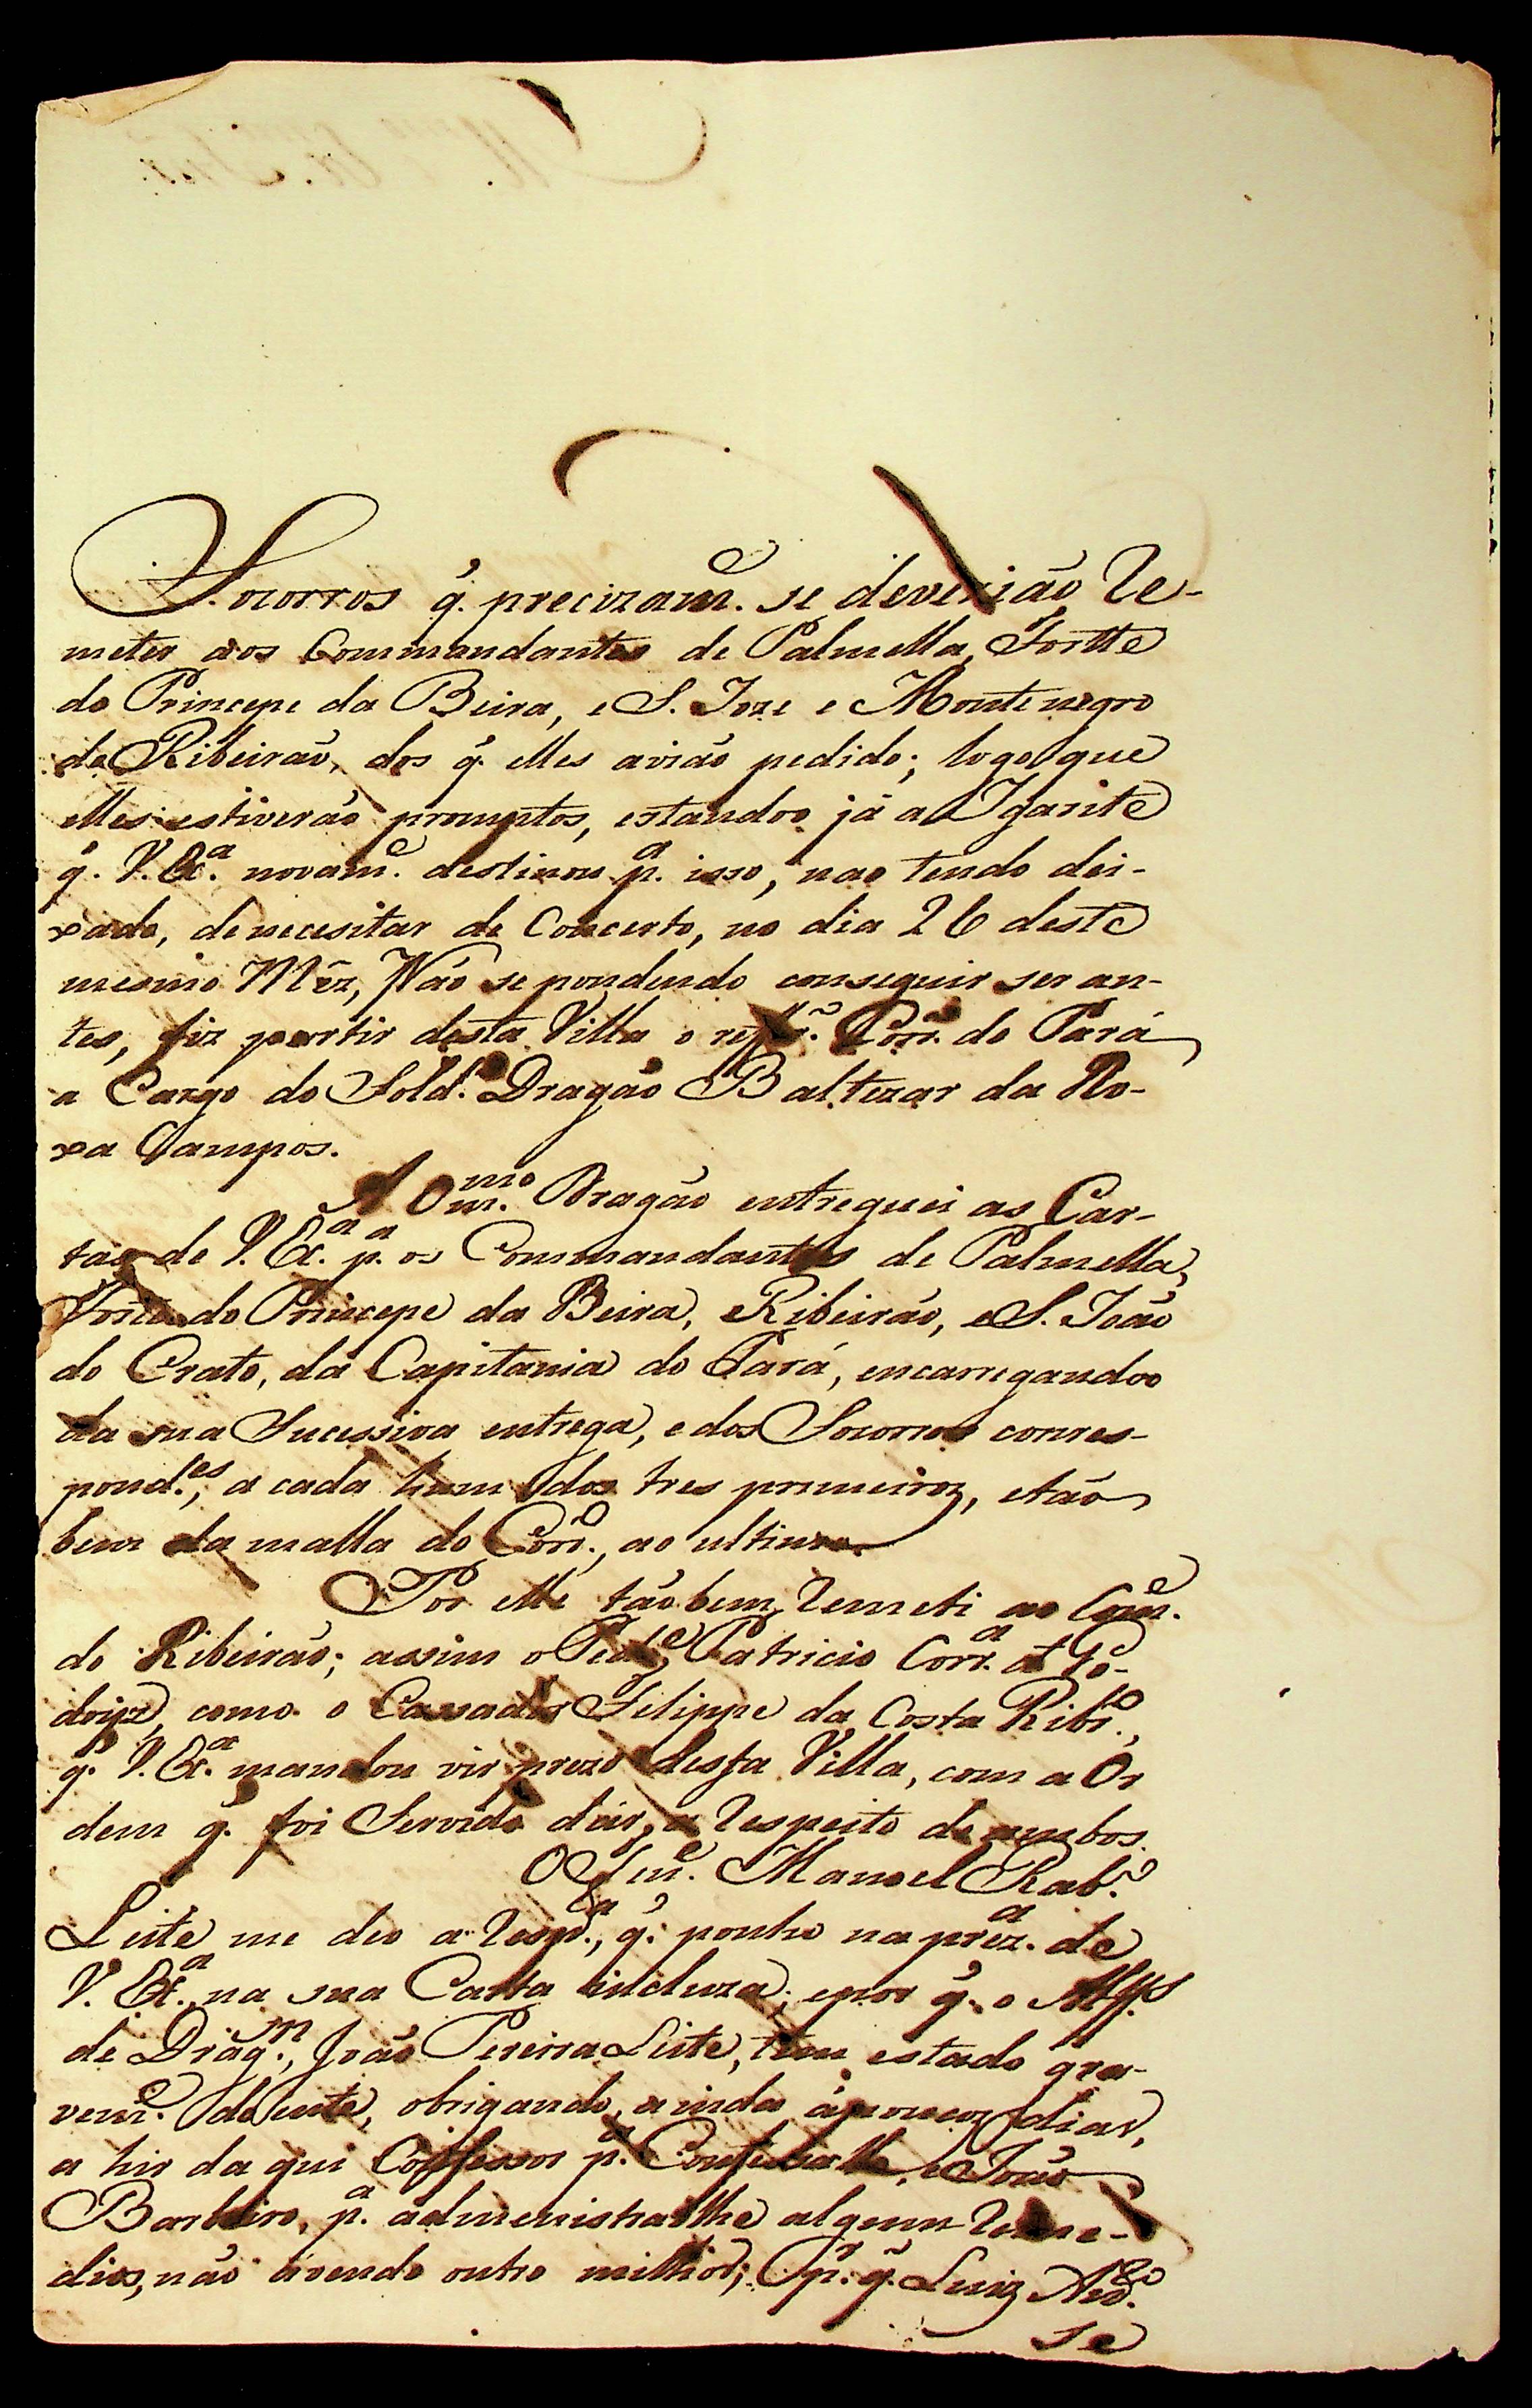 Socorros q̃. precizam.e se deverião Re-
meter aos Commandantes de Palmella, Fortte
do Princepe da Beira, e S. Joze e Montenegro
do Ribeirão, dos q̃. elles avião pedido; logo que
elles estiverão promptos, estandoo já a Igarite
q̃. V. Ex.a novam.e destinou p.a isso, nao tendo dei-
xado, de necesitar de Concerto, no dia 26 deste
mesmo Mêz, Não se pondendo conseguir ser an-
tes, fiz partir desta Villa o Corr.o do Pará
a Cargo do Sold.o Dragão Baltezar da Ro-
xa Campos.
A O m.mo Dragão entreguei as Car-
tas de V. Ex.a p.a os Commandantes de Palmella,
Forte do Princepe da Beira, e Ribeirão, e S. João
do Crato, da Capitania do Pará, encarregandoo
da sua Sucessiva entrega, e dos Socorros corres-
pond.es, a cada hum dos tres primeiros, e tão
bem da malla do Corr.o, ao ultimo.
Por elle tãobem Remeti ao Com.e
do Ribeirão; assim o Ped.e Patricio Corr.a de Go-
doiz, como o Cassador Filippe da Costa Ribr.o,
q̃. V. Ex.a mandou vir prezo desta Villa, com a Or
dem q̃. foi Servido dar, a Respeito de ambos.
O Ten.e Manoel Rab.o
Leite me deo a Resp.a, q̃. ponho na prez.a de
V. Ex.a na sua Carta incluza; e por q̃. o Alf.es
de Drag.m, João Pereira Leite, tem estado gra-
vem.e doente, obrigando, ainda á poucoz dias,
a hir da qui Confessor p.a Confessalle, e João
Barbeiro, p.a admenistralhe algum Reme-
dios, não avendo outro milhor; p.r q̃. Luiz Az.do
se